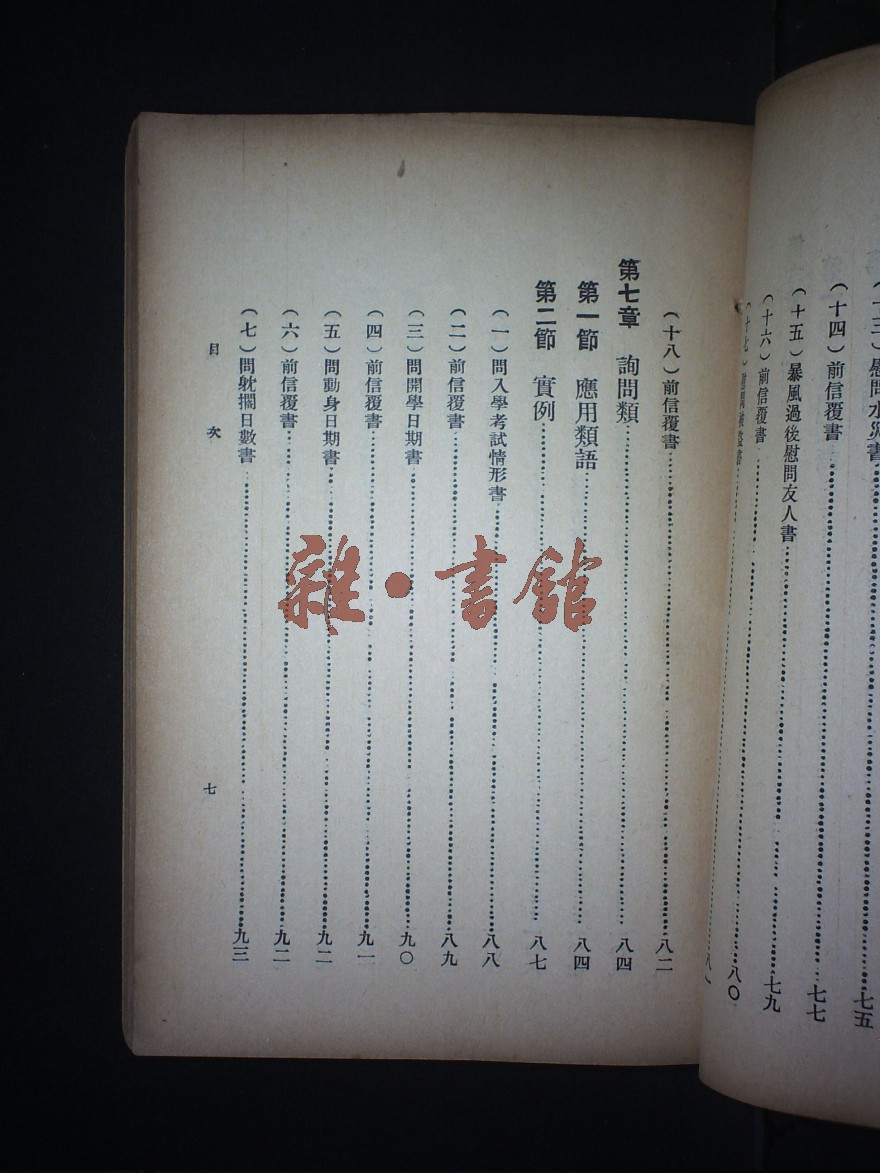 (十三)慰問水災書……七五
(十四)前信覆書……七七
(十五)暴風過後慰問友人書……七九
(十六)前信覆書……八〇
(十七)
(十八)前信覆書……八二
第七章 詢問類……八四
第一節 應用類語……八四
第二節 實例……八七
(一)問入學考試情形書……八八
(二)前信覆書……八九
(三)問開學日期書……九〇
(四)前信覆書……九一
(五)問動身日期書……九二
(六)前信覆書……九二
(七)問躭擱日數書……九三
目次
七
雜·書館